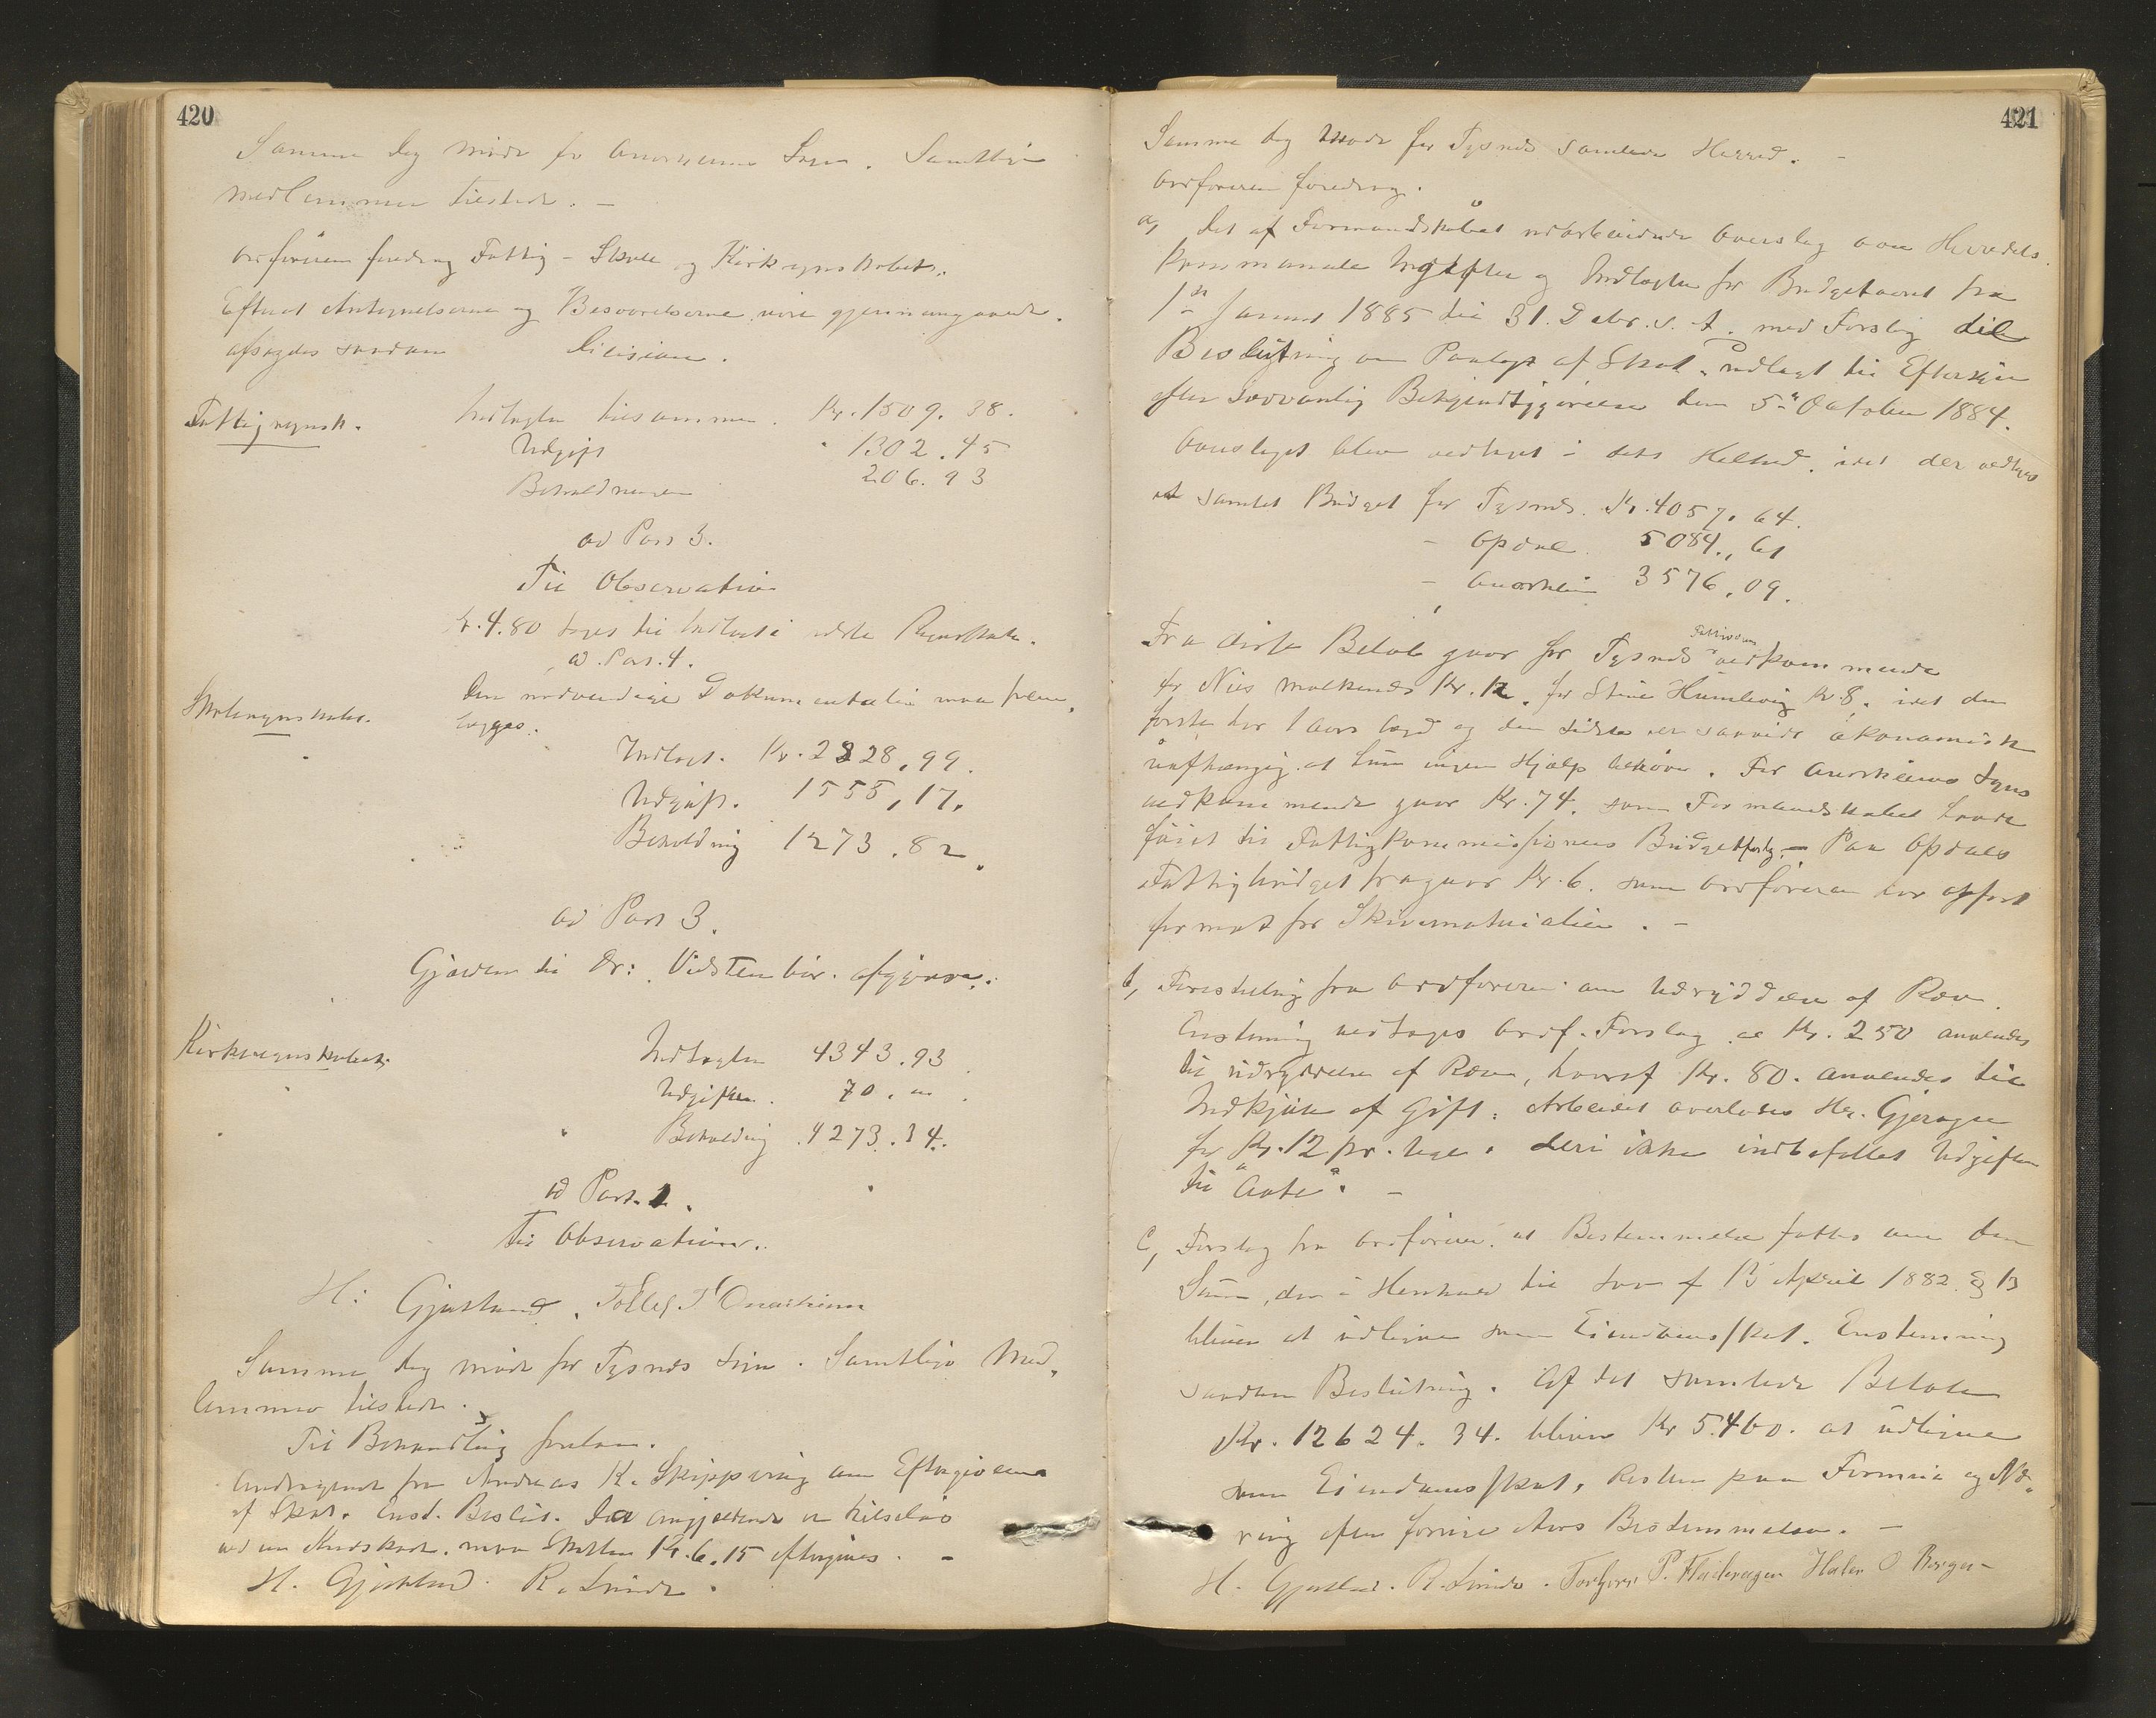 420
Samme Dag møde for Onarheims Sogn. Samtlige
medlemmer tilstede. –
Ordføreren foredrog Fattig- Skole og Kirkeregnskabet.
Efterat Antegnelserne og Besvarelserne vare gjennemgaaede.
afsagdes saadan Decision.
Fattigregnsk. Indtægten tilsammen. Kr. 1509. 38.
Udgift 1302. 45
Beholdningen 206. 93
ad Post 3.
Til Observation
Kr. 4.80 tages til Indtægt i Regnskab.
ad. Post. 4.
Skoleregnskabet. Den nødvendige Dokumentation maa frem-
lægges.
Indtægt. Kr. 2828, 99.
Udgift. 1555, 17.
Beholdning 1273. 82.
ad Post 3.
Gjælden til Dr: Vidsten bør afgjøres.
Kirkeregnskabet. Indtægten 4343. 93
Udgiften. 70. "
Beholdning. 4273. 34.
ad Post. 1.
Til Observation.
H: Gjestland. Tollef T Onarheim
Samme dag møde for Tysnæs Sogn. Samtlige Med-
lemmer tilstede.
Til Behandling forelaa.
Andragende fra Andreas K. Skippervig om Eftergivelse
af Skat. Enst. Beslut. Da angjældende er tilskade
ved en maa Skatten Kr. 6. 15 eftergives. –
H. Gjestland. R. Lunde.
421
Samme dag møde for Tysnæs samlede Herred. –
Ordføreren foredrog.
a, Det af Formandskabet udarbeidede Overslag over Herredets
kommunale Udgifter og Indtægter for Budgetaaret fra
1ste Januar 1885 til 31. Debr. s. A. med Forslag til
Beslutning om Paalæg af Skat, udlagt til Eftersyn
efter sædvanlig Bekjendtgjørelse den 5te October 1884.
Overslaget blev vedtaget i dets Helhed, idet der vedtages
et samlet Budget for Tysnæs. Kr. 4057. 64.
– Opdal. 5084., 61
– Onarheim 3576, 09.
Fra disse Beløb gaar for Tysnæs Fattigvæsen vedkommende
for Nils Kr. 12. for Stine Humlevig Kr. 8. idet den
første har lægd og den sidste er saavidt økonomisk
uafhængig at hun ingen Hjælp behøver. For Onarheims Sogns
vedkommende gaar Kr. 74. som Formandskabet havde
føiet til Fattigkommissionens Budgetforslg. – Paa Opdals
Fattigbudget fragaar Kr. 6. som Ordføreren har opført
for mat for Skrivematerialier. –
b, Forestilling fra Ordføreren om Udryddelse af Ræv
Enstemmig vedtages Ordf. Forslag at Kr. 250 anvendes
til udryddelse af Ræv, hvoraf Kr. 80. anvendes til
Indkjøb af Gift. Arbeidet overlades Hr. Gjeragen
for Kr. 12 pr. Uge. deri ikke indbefattet Udgiften
til "Aate". –
c, Forslag fra Ordfører. at Bestemmelse fattes om den
Sum, der i Henhold til Lov af 15 April 1882 § 13
bliver at udligne som Eiendomsskat. Enstemmig
saadan Beslutning. Af det samlede Beløb
Kr. 12624. 34. bliver Kr 5.460. at udligne
som Eiendomsskat, Resten paa Formue og Næ-
ring efter forrige Aars Bestemmelse. –
H. Gjestland. R. Lunde. P. Fladeragen O Borgen